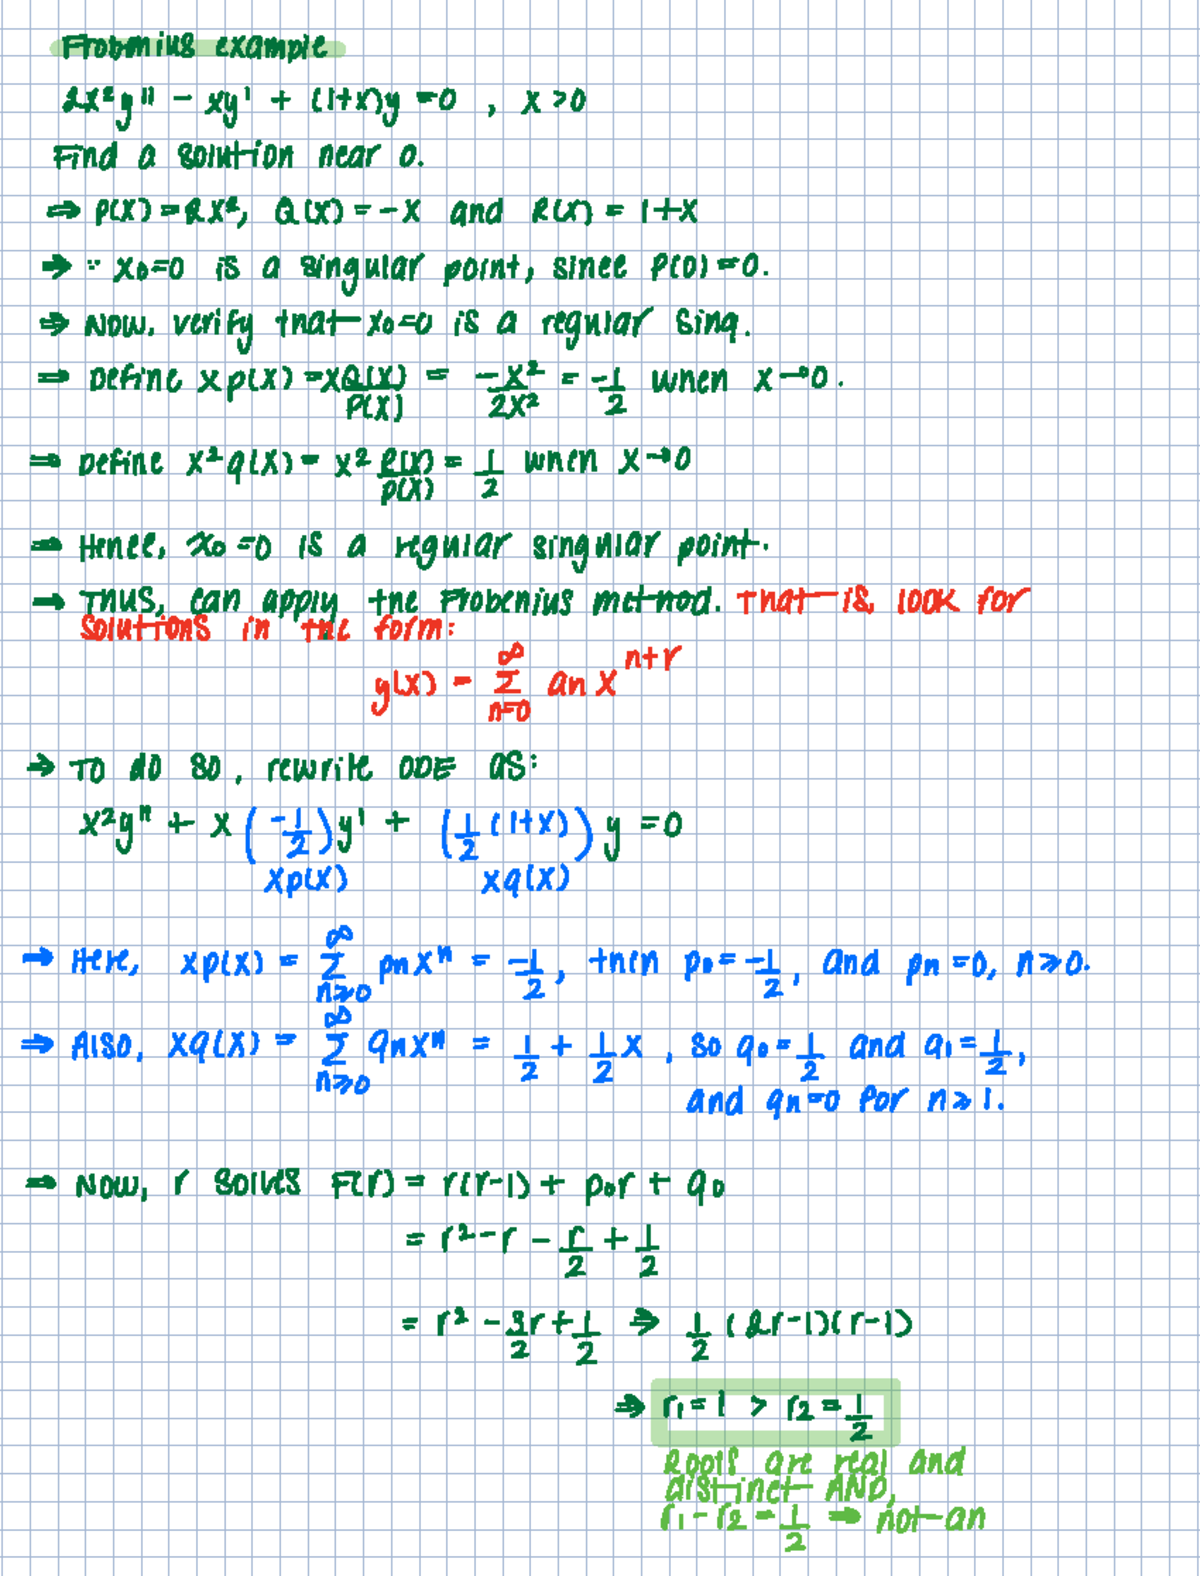 Frobenius example
2x²y'' - xy' + (1+x)y = 0 , x > 0
Find a solution near 0.
⇒ P(x) = 2x², Q(x) = -x and R(x) = 1+x
⇒ ∵ x₀=0 is a singular point, since P(0) = 0.
⇒ Now, verify that x₀=0 is a regular sing.
⇒ Define xp(x) = x Q(x)/P(x) = -x²/2x² = -1/2 when x→0.
⇒ Define x²q(x) = x² R(x)/P(x) = 1/2 when x→0
⇒ Hence, x₀=0 is a regular singular point.
⇒ Thus, can apply the Frobenius method. That is, look for
solutions in the form:
y(x) = ∞ Σ n=0 aₙ x^(n+r)
⇒ To do so, rewrite ODE as:
x²y'' + x (-1/2) y' + (1/2 (1+x)) y = 0
xp(x) xq(x)
⇒ Here, xp(x) = ∞ Σ n≥0 pₙxⁿ = -1/2, then p₀ = -1/2, and pₙ = 0, n≥0.
⇒ Also, xq(x) = ∞ Σ n≥0 qₙxⁿ = 1/2 + 1/2 x , so q₀ = 1/2 and q₁ = 1/2,
and qₙ=0 for n≥1.
⇒ Now, r solves F(r) = r(r-1) + p₀r + q₀
= r² - r - r/2 + 1/2
= r² - 3/2 r + 1/2 ⇒ 1/2 (2r-1)(r-1)
⇒ r₁ = 1 > r₂ = 1/2
Roots are real and
distinct AND,
r₁ - r₂ = 1/2 ⇒ not an